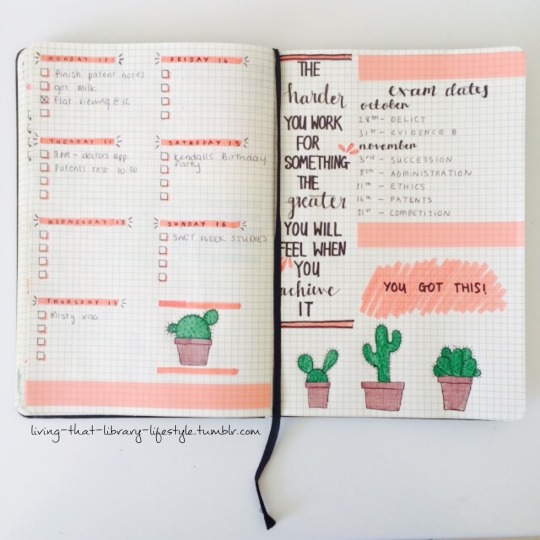 MONDAY
finish patent notes
get milk
Flat viewing @ 12
TUESDAY 11
9AM - doctor app.
Patents rest 10:30
WEDNESDAY
THURSDAY
Misty visa
FRIDAY 14
SATURDAY 15
Kendalls Birthday
Party
SUNDAY 16
SWOT WEEK STUDIES
THE
harder
YOU WORK
FOR
SOMETHING
THE
greater
YOU WILL
FEEL WHEN
YOU
achieve
IT
exam dates
october
28TH - DELICT
31ST - EVIDENCE
november
3RD - SUCCESSION
8TH - ADMINISTRATION
11TH - ETHICS
16TH - PATENTS
21ST - COMPETITION
YOU GOT THIS!
living-that-library-lifestyle.tumblr.com